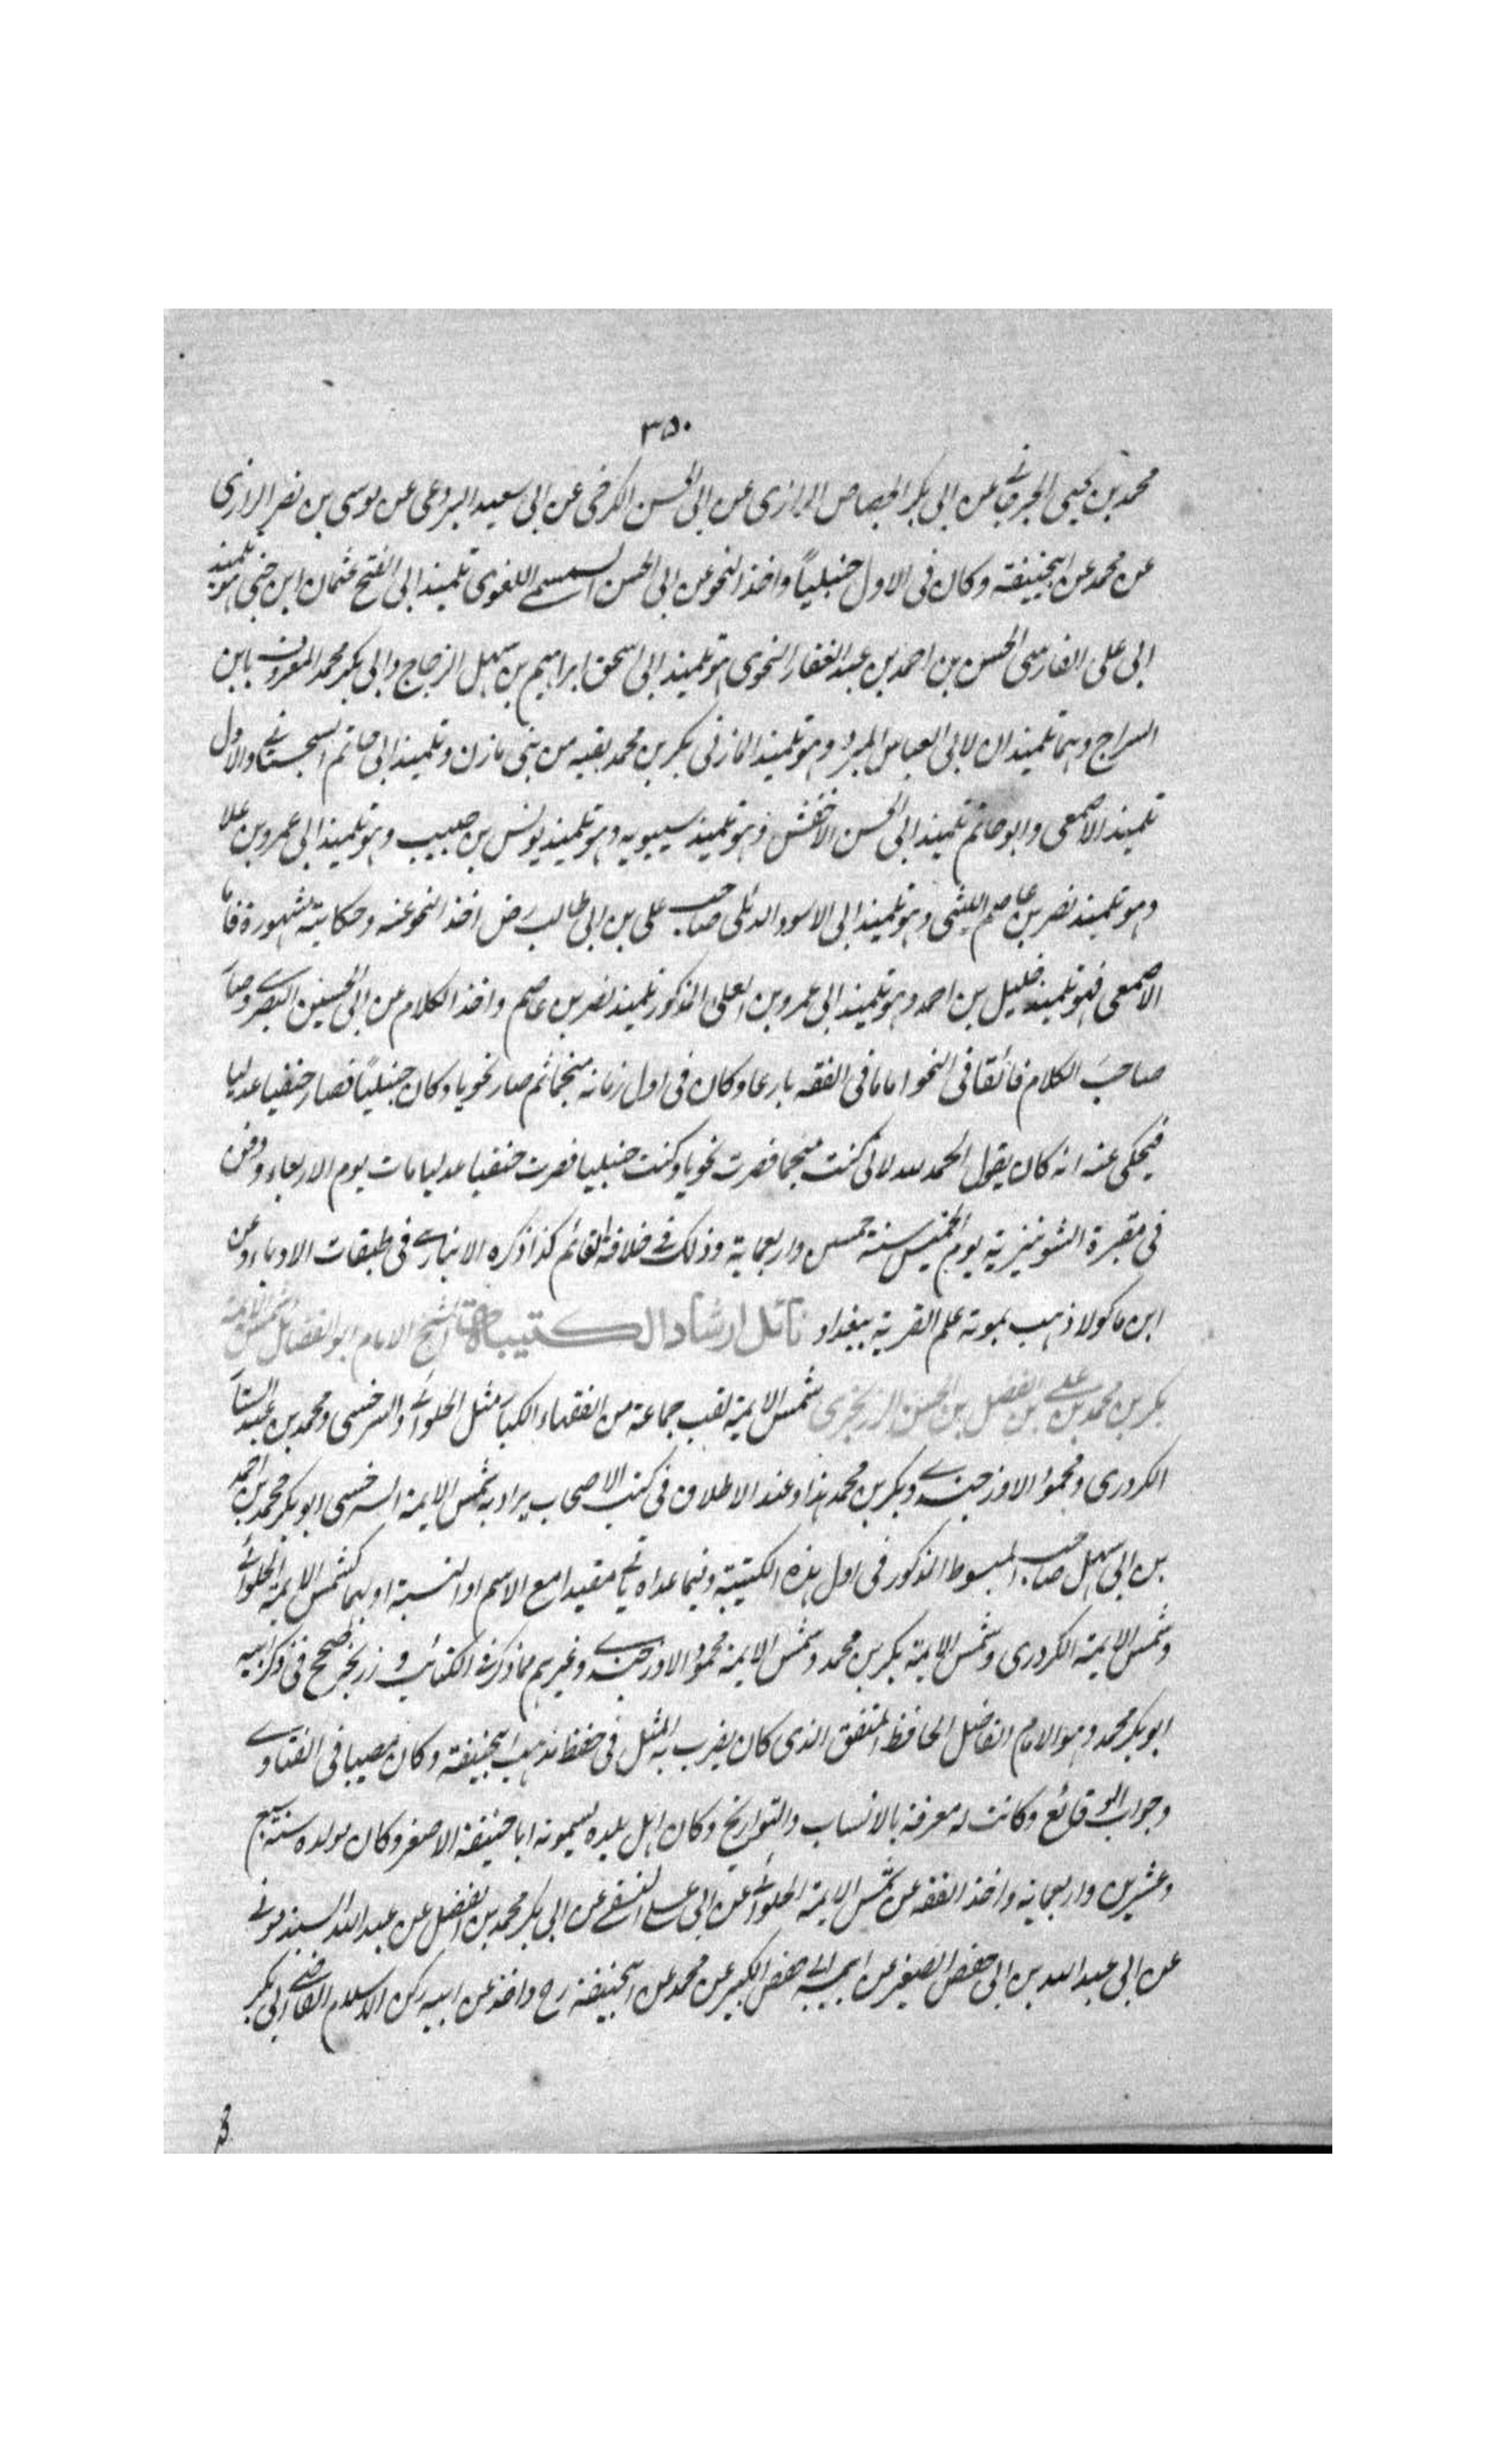 ٣٥٠
محمد بن يحيى الجرجاني عن ابى بكر الجصاص الرازى عن ابى الحسن الكرخى عن ابى سعيد البردعى عن موسى بن نصر الرازى
عن محمد عن ابيحنيفة وكان فى الاول حنبلياً واخذ النحو عن ابى الحسن السمسمى اللغوى تلميذ ابى الفتح عثمان ابن جنى هو تلميذ
ابى على الفارسى الحسن بن احمد بن عبد الغفار النحوى هو تلميذ ابى اسحق ابراهيم بن سهل الزجاج وابى بكر محمد المعروف بابن
السراج وهما تلميذان لابى العباس المبرد وهو تلميذ المازنى بكر بن محمد بقية من بنى مازن وتلميذ ابى حاتم السجستانى والاول
تلميذ الاصمعى وابو حاتم تلميذ ابى الحسن الاخفش وهو تلميذ سيبويه وهو تلميذ يونس بن حبيب وهو تلميذ ابى عمرو بن علا
وهو تلميذ نصر بن عاصم الليثى وهو تلميذ ابى الاسود الدئلى صاحب على بن ابى طالب رض اخذ النحو عنه وحكايته مشهورة فاما
الاصمعى فهو تلميذ خليل بن احمد وهو تلميذ ابى عمرو بن العلى المذكور تلميذ نصر بن عاصم واخذ الكلام عن ابى الحسين البصرى وصار
صاحب الكلام فائقا فى النحو اماما فى الفقه بارعا وكان فى اول زمانه منجما ثم صار نحويا وكان حنبلياً فصار حنفيا عدليا
فيحكى عنه انه كان يقول الحمد لله لانى كنت منجما فصرت نحويا وكنت حنبليا فصرت حنفيا عدليا مات يوم الاربعاء ودفن
فى مقبرة الشونيزية يوم الخميس سنة خمس واربعماية وذلك فى خلافة القائم كذا ذكره الانبارى فى طبقات الادباء وعن
ابن ماكولا ذهب بموته علم القرية ببغداد الشيخ الامام ابو الفضائل شمس الايمة
بكر بن محمد بن على بن الفضل بن الحسن الزرنجرى شمس الايمة لقب جماعة من الفقهاء الكبار مثل الحلوائى والسرخسى ومحمد بن عبد الستار
الكردرى ومحمود الاوزجندى وبكر بن محمد هذا وعند الاطلاق فى كتب الاصحاب يراد به شمس الايمة السرخسى ابو بكر محمد بن احمد
بن ابى سهل صاحب المبسوط المذكور فى اول هذه الكتيبة وفيما عداه ياتى مقيدا مع الاسم او النسبة او بهما كشمس الايمة الحلوائى
وشمس الايمة الكردرى وشمس الايمة بكر بن محمد وشمس الايمة محمود الاوزجندى وغيرهم مما ذكر فى الكتائب و زرنجر صحح فى ذكر ابيه
ابو بكر محمد وهو الامام الفاضل الحافظ المتفق الذى كان يضرب به المثل فى حفظ مذهب ابيحنيفة وكان مصيبا فى الفتاوى
وجواب الوقائع وكانت له معرفة بالانساب والتواريخ وكان اهل بلده يسمونه ابا حنيفة الاصغر وكان مولده سنة سبع
وعشرين واربعماية واخذ الفقه عن شمس الايمة الحلوائى عن ابى على النسفى عن ابى بكر محمد بن الفضل عن عبد الله السبذمونى
عن ابى عبد الله بن ابى حفص الصغير عن ابيه ابى حفص الكبير عن محمد عن ابيحنيفة رح واخذ عن ابيه ركن الاسلام القاضى ابى بكر